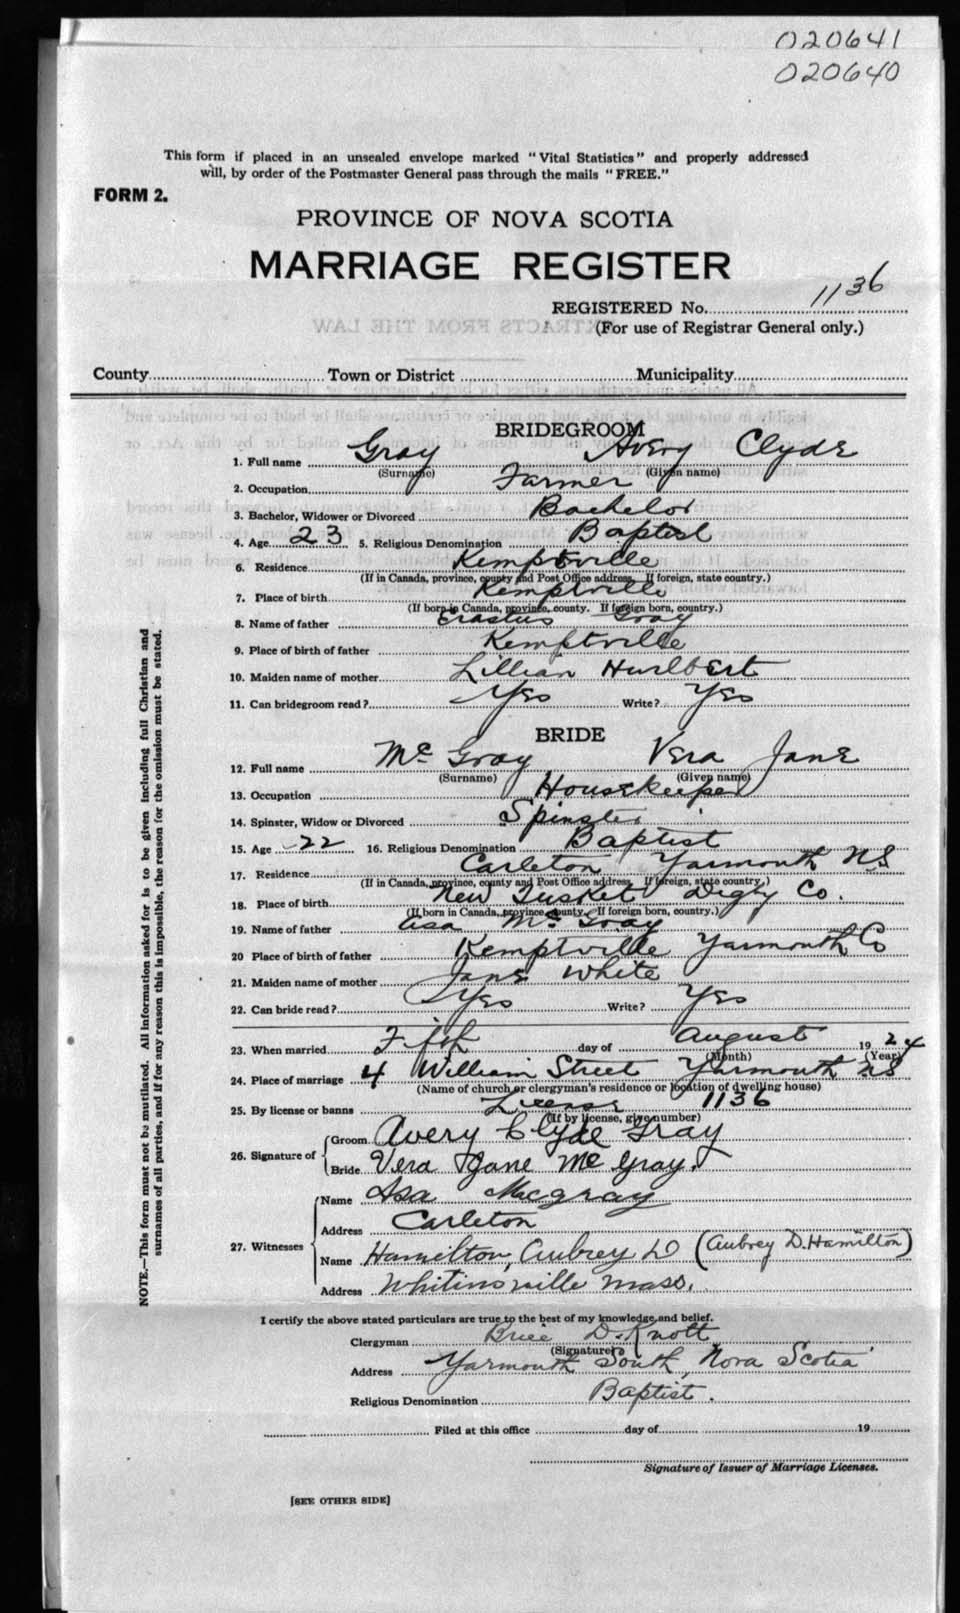 020641
020640
This form if placed in an unsealed envelope marked "Vital Statistics" and properly addressed
will, by order of the Postmaster General pass through the mails "FREE."
FORM 2.
PROVINCE OF NOVA SCOTIA
MARRIAGE REGISTER
REGISTERED No. 1136
(For use of Registrar General only.)
County Town or District Municipality
BRIDEGROOM
1. Full name Gray Avery Clyde
(Surname) (Given name)
2. Occupation Farmer
3. Bachelor, Widower or Divorced Bachelor
4. Age 23 5. Religious Denomination Baptist
6. Residence Kemptville
(If in Canada, province, county and Post Office address. If foreign, state country.)
7. Place of birth Kemptville
(If born in Canada, province, county. If foreign born, country.)
8. Name of father Erastus Gray
9. Place of birth of father Kemptville
10. Maiden name of mother Lillian Hurlbert
11. Can bridegroom read? Yes Write? Yes
BRIDE
12. Full name Mc Gray Vera Jane
(Surname) (Given name)
13. Occupation Housekeeper
14. Spinster, Widow or Divorced Spinster
15. Age 22 16. Religious Denomination Baptist
17. Residence Carleton Yarmouth N.S
(If in Canada, province, county and Post Office address. If foreign, state country.)
18. Place of birth New Tusket Digby Co.
(If born in Canada, province county. If foreign born, country.)
19. Name of father Asa Mc Gray
20 Place of birth of father Kemptville Yarmouth Co
21. Maiden name of mother Jane White
22. Can bride read? Yes Write? Yes
23. When married Fifth day of August 1924
(Month) (Year)
24. Place of marriage 4 William Street Yarmouth NS
(Name of church or clergyman's residence or location of dwelling house)
25. By license or banns License 1136
(If by license, give number)
26. Signature of
Groom Avery Clyde Gray
Bride Vera Jane Mc Gray.
27. Witnesses
Name Asa Macgray
Address Carleton
Name Hamelton, Aubrey D (Aubrey D. Hamilton)
Address Whitinsville Mass.
I certify the above stated particulars are true to the best of my knowledge and belief.
Clergyman Brice D. Knott
(Signature)
Address Yarmouth South, Nova Scotia
Religious Denomination Baptist.
Filed at this office day of 19
Signature of Issuer of Marriage Licenses.
[SEE OTHER SIDE]
NOTE.—This form must not be mutilated. All information asked for is to be given including full Christian and
surnames of all parties, and if for any reason this is impossible, the reason for the omission must be stated.